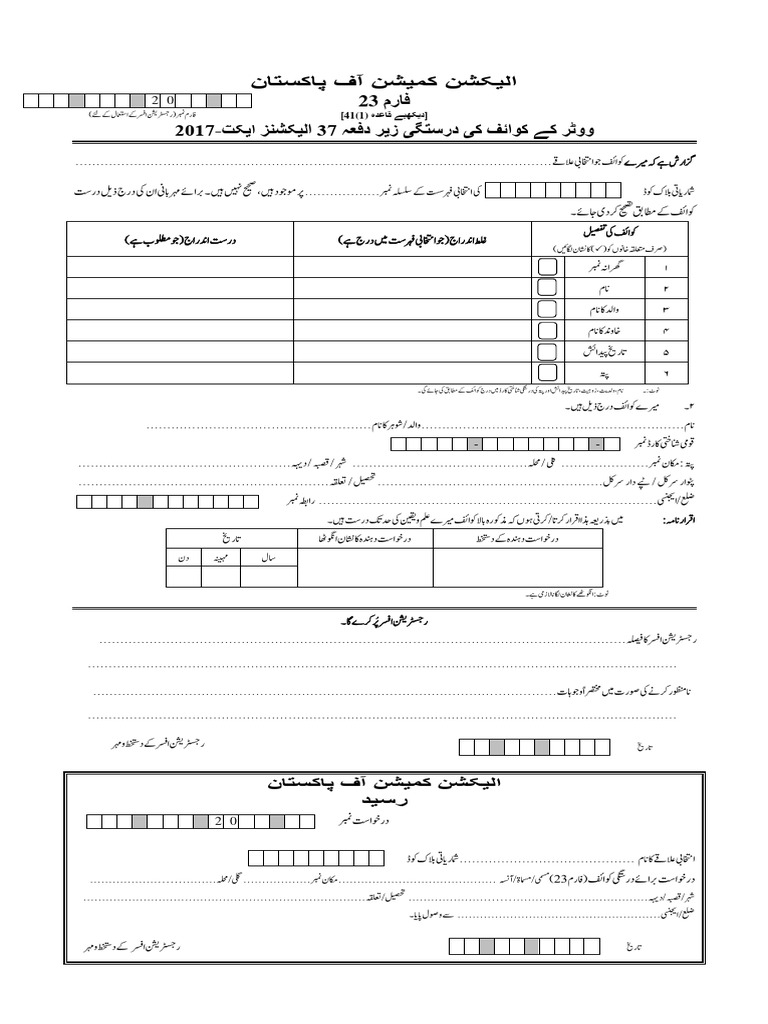 الیکشن کمیشن آف پاکستان
فارم 23
20
[دیکھیے قاعدہ (1)41]
فارم نمبر (رجسٹریشن افسر کے استعمال کے لئے)
ووٹر کے کوائف کی درستگی زیر دفعہ 37 الیکشنز ایکٹ-2017
گزارش ہے کہ میرے کوائف جو انتخابی علاقے
شماریاتی بلاک کوڈ کی انتخابی فہرست کے سلسلہ نمبر پر موجود ہیں، صحیح نہیں ہیں۔ برائے مہربانی ان کی درج ذیل درست
کوائف کے مطابق تصحیح کر دی جائے۔
کوائف کی تفصیل
(صرف متعلقہ خانوں کو (✓) کا نشان لگائیں)
غلط اندراج (جو انتخابی فہرست میں درج ہے)
درست اندراج (جو مطلوب ہے)
۱ گھرانہ نمبر
۲ نام
۳ والد کا نام
۴ خاوند کا نام
۵ تاریخ پیدائش
۶ پتہ
نوٹ:۔ نام، ولدیت، زوجیت، تاریخ پیدائش اور پتہ کی درستگی شناختی کارڈ میں درج کوائف کے مطابق کی جائے گی۔
۲۔ میرے کوائف درج ذیل ہیں۔
نام والد/شوہر کا نام
قومی شناختی کارڈ نمبر - -
پتہ: مکان نمبر گلی/محلہ شہر/قصبہ/دیہہ
پٹوار سرکل/ٹپے دار سرکل تحصیل/تعلقہ
ضلع/ایجنسی رابطہ نمبر
اقرار نامہ: میں بذریعہ ہذا اقرار کرتا/کرتی ہوں کہ مذکورہ بالا کوائف میرے علم و یقین کی حد تک درست ہیں۔
درخواست دہندہ کے دستخط درخواست دہندہ کا نشان انگوٹھا تاریخ
سال مہینہ دن
نوٹ: انگوٹھے کا نشان لگانا لازمی ہے۔
رجسٹریشن افسر پُر کرے گا۔
رجسٹریشن افسر کا فیصلہ
نامنظور کرنے کی صورت میں مختصراً وجوہات
تاریخ رجسٹریشن افسر کے دستخط و مہر
الیکشن کمیشن آف پاکستان
رسید
درخواست نمبر 20
انتخابی علاقے کا نام شماریاتی بلاک کوڈ
درخواست برائے درستگی کوائف (فارم 23) مسمی/مسماۃ/آنسہ مکان نمبر گلی/محلہ
شہر/قصبہ/دیہہ تحصیل/تعلقہ
ضلع/ایجنسی سے وصول پایا۔
تاریخ رجسٹریشن افسر کے دستخط و مہر